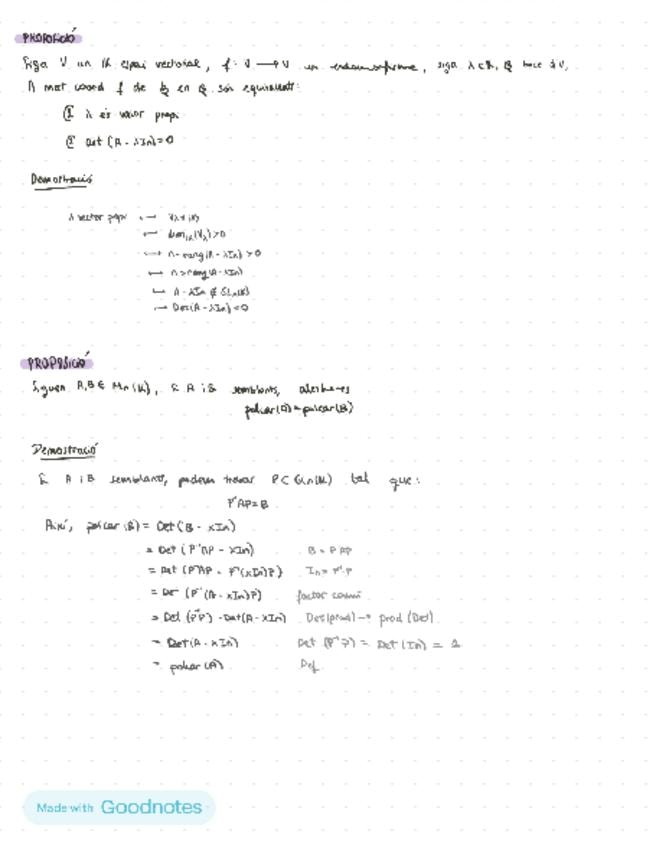 PROPOSICIÓ
Siga V un K espai vectorial, f: V → V un endomorfisme, siga λ ∈ K, B base de V,
A mat coord f de B en B. són equivalents:
① λ és valor propi
② Det (A - λIn) = 0
Demostració
λ vector propi ↔ Vλ ≠ {0}
↔ dim_K(Vλ) > 0
↔ n - rang(A - λIn) > 0
↔ n > rang(A - λIn)
↔ A - λIn ∉ GLn(K)
↔ Det(A - λIn) = 0
PROPOSICIÓ
Siguen A, B ∈ Mn(K), si A i B semblants, aleshores
polcar(A) = polcar(B)
Demostració
Si A i B semblants, podem trobar P ∈ GLn(K) tal que:
P⁻¹AP = B
Així, polcar(B) = Det(B - xIn)
= Det (P⁻¹AP - xIn) B = P⁻¹AP
= Det (P⁻¹AP - P⁻¹(xIn)P) In = P⁻¹P
= Det (P⁻¹(A - xIn)P) factor comú
= Det (P⁻¹P) · Det(A - xIn) Det(prod) → prod (Det)
= Det(A - xIn) Det (P⁻¹P) = Det (In) = 1
= polcar (A) Def
Made with Goodnotes